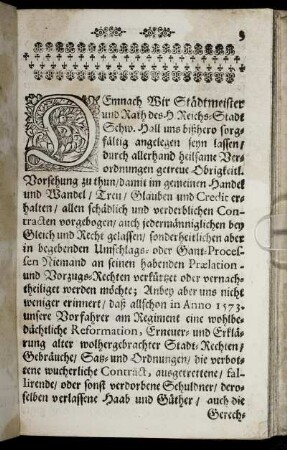 3
DEmnach Wir Städtmeister
und Rath des H. Reichs-Stadt
Schw. Hall uns bißhero sorg-
fältig angelegen seyn lassen/
durch allerhand heilsame Ver-
ordnungen getreue Obrigkeitl.
Vorsehung zu thun/ damit im gemeinen Handel
und Wandel/ Treu/ Glauben und Credit er-
halten/ allen schädlich und verderblichen Con-
tracten vorgebogen/ auch jedermänniglichen bey
Gleich und Recht gelassen/ sonderheitlichen aber
in begebenden Umschlags- oder Gant-Proces-
sen Niemand an seinen habenden Prælation-
und Vorzugs-Rechten verkürtzet oder vernach-
theiliget werden möchte; Anbey aber uns nicht
weniger erinnert/ daß allschon in Anno 1573.
unsere Vorfahrer am Regiment eine wohlbe-
dächtliche Reformation, Erneuer- und Erklä-
rung alter wolhergebrachter Stadt-Rechten/
Gebräuche/ Satz- und Ordnungen/ die verbot-
tene wucherliche Contract, ausgetrettene/ fal-
lirende/ oder sonst verdorbene Schuldner/ dero-
selben verlassene Haab und Güther/ auch die
Gerech-